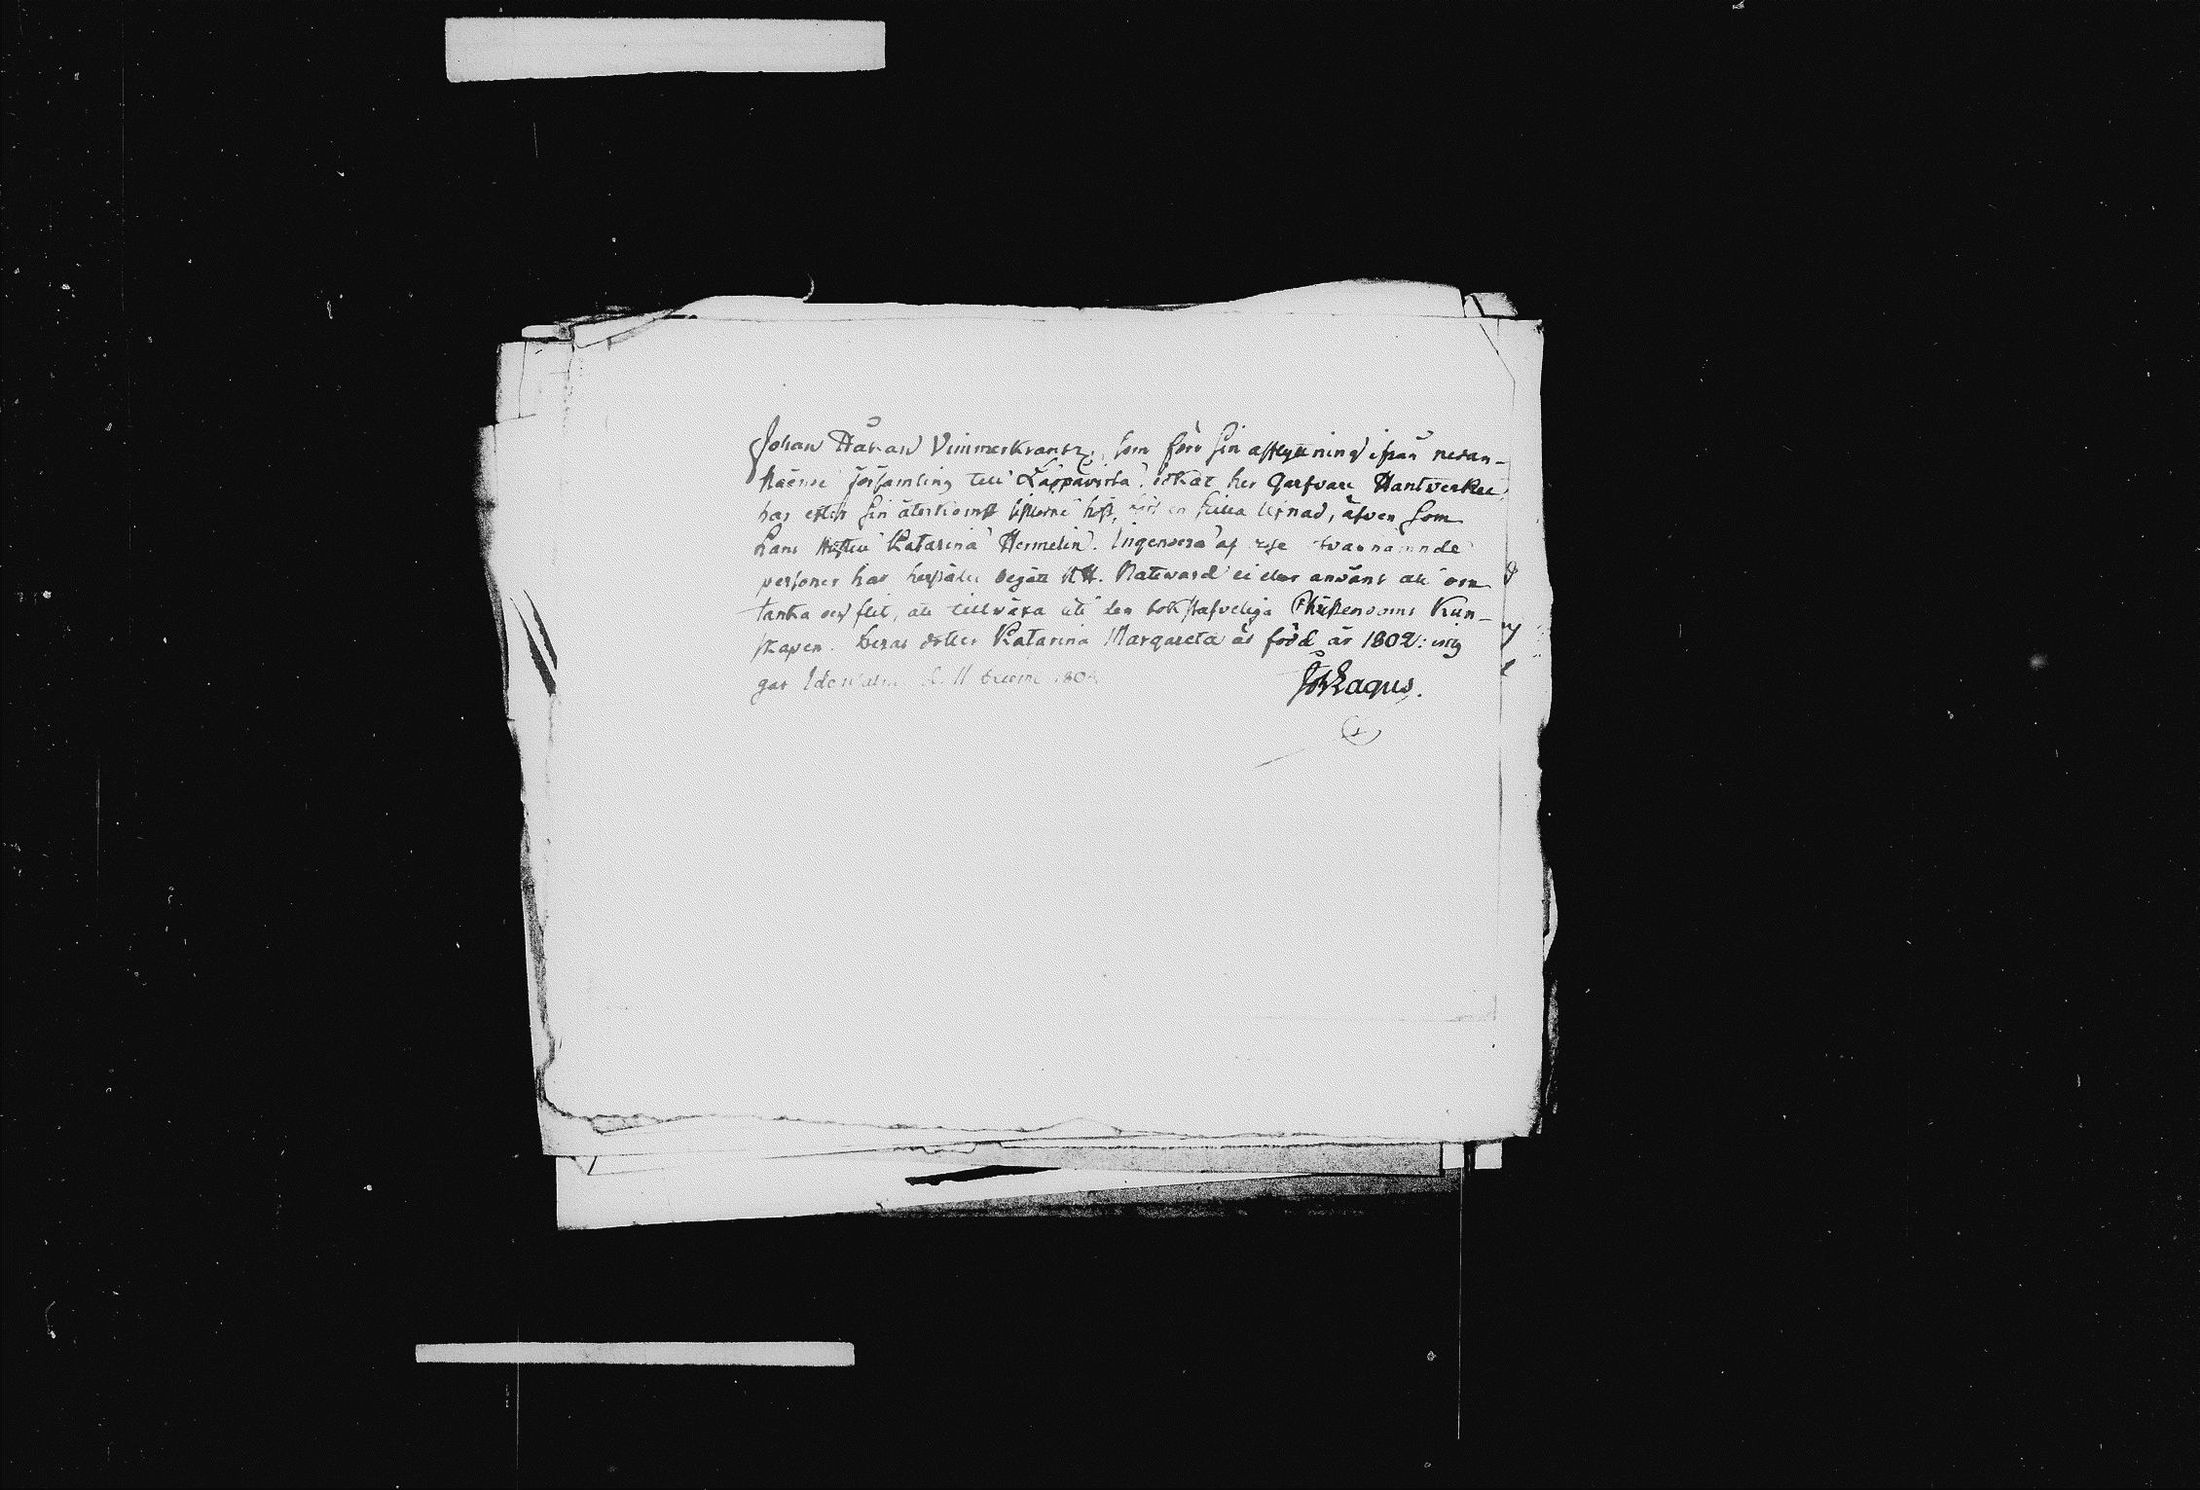 Johan Håkan Vimmerkrantz, som före sin afflyttning ifrån nedan-
stående församling till Läppävirta idkat her Garfvare Hantverket
har efter sin återkomst hit, en stilla lefnad, äfven som
hans Hustru Katarina Hermelin. Ingendera af desse ofvannämnde
personer har härstädes begått H. Nattward ei eller använt all om
tanka och flit, att tillväxa uti den bokstafveliga Christendoms Kun-
skapen. Deras dotter Katarina Margareta är född år 1802:
Idensalmi d. 11 180
Joh Lagus.